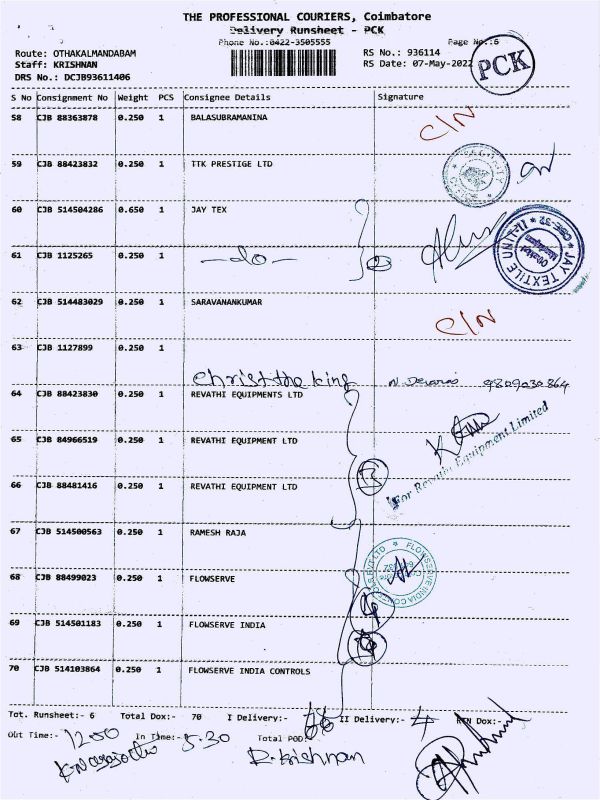 THE PROFESSIONAL COURIERS, Coimbatore
Delivery Runsheet - PCK
Phone No.:0422-3505555 Page No.:6
Route: OTHAKALMANDABAM RS No.: 936114
Staff: KRISHNAN RS Date: 07-May-2022
DRS No.: DCJB93611406
PCK
S No Consignment No Weight PCS Consignee Details Signature
58 CJB 88363878 0.250 1 BALASUBRAMANINA C/N
59 CJB 88423832 0.250 1 TTK PRESTIGE LTD
60 CJB 514504286 0.650 1 JAY TEX
61 CJB 1125265 0.250 1 -do- 2
JAY TEXTILE UNIT-II CBE-32
62 CJB 514483029 0.250 1 SARAVANANKUMAR C/N
63 CJB 1127899 0.250 1
Christ the king 9809030864
64 CJB 88423830 0.250 1 REVATHI EQUIPMENTS LTD
65 CJB 84966519 0.250 1 REVATHI EQUIPMENT LTD
For Revathi Equipment Limited
66 CJB 88481416 0.250 1 REVATHI EQUIPMENT LTD
67 CJB 514500563 0.250 1 RAMESH RAJA
68 CJB 88499023 0.250 1 FLOWSERVE
69 CJB 514501183 0.250 1 FLOWSERVE INDIA
70 CJB 514103864 0.250 1 FLOWSERVE INDIA CONTROLS
Tot. Runsheet:- 6 Total Dox:- 70 I Delivery:- II Delivery:- 4 RTN Dox:-
Out Time:- 12.00 In Time:- 5.30 Total POD:-
R. Krishnan